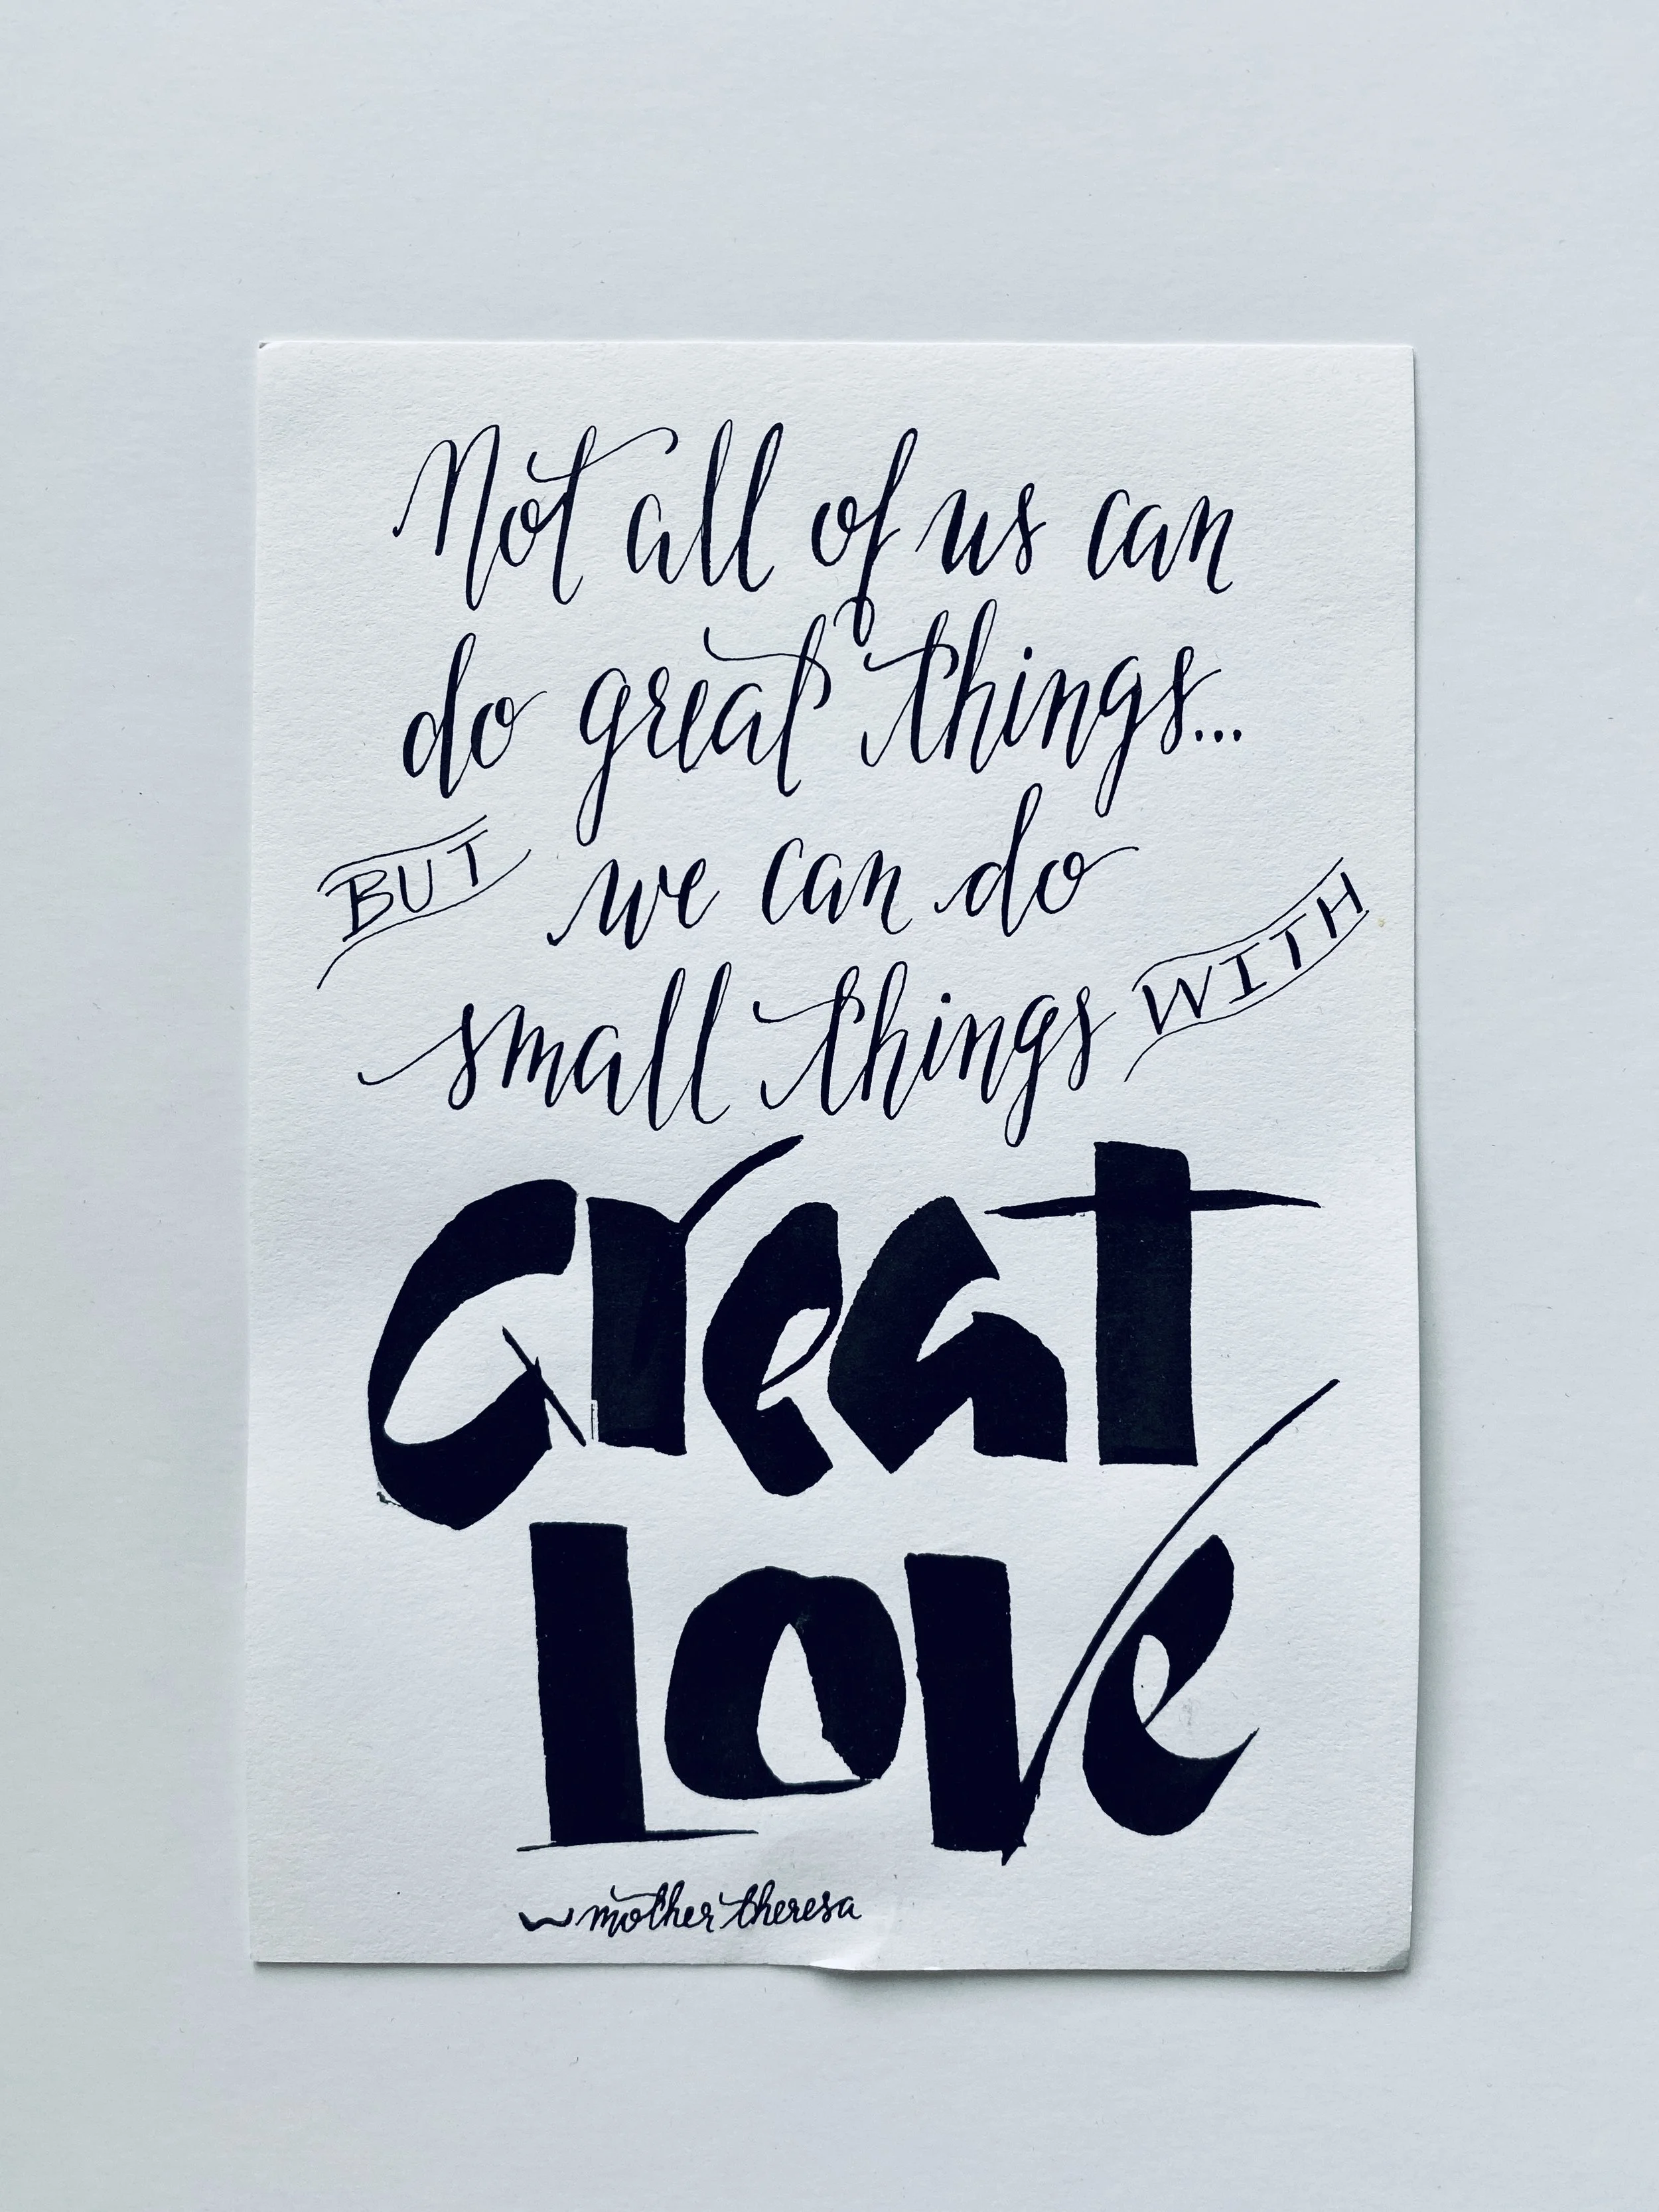 Not all of us can
do great things...
BUT we can do
small things WITH
Great
Love
~ mother theresa